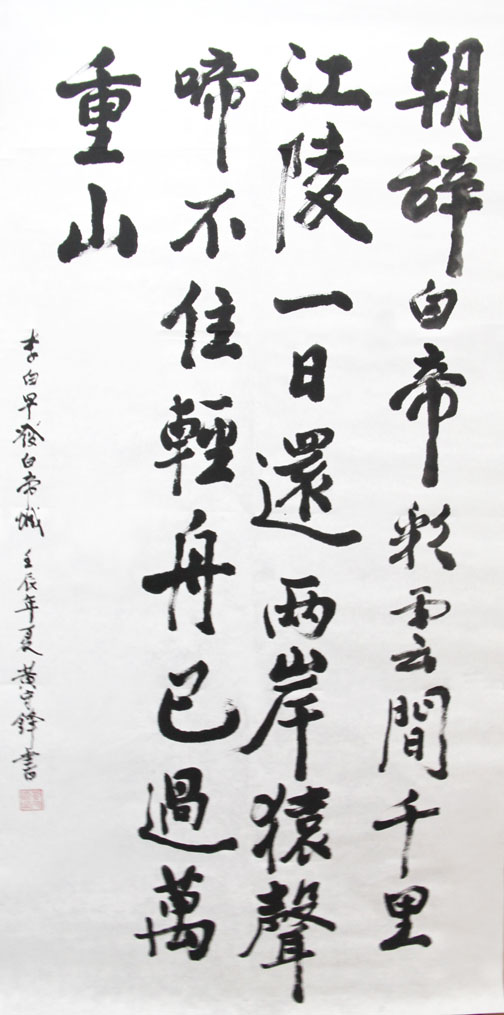 朝辞白帝彩雲間千里
江陵一日還兩岸猿聲
啼不住輕舟已過萬
重山
李白早發白帝城 壬辰年夏 黃
書